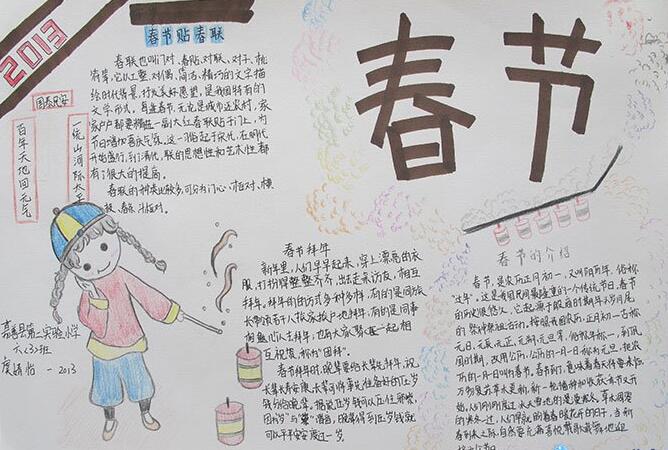 2013
春节贴春联
春联也叫门对、春贴、对联、对子、桃
符等,它以工整、对偶、简洁、精巧的文字描
绘时代背景,抒发美好愿望,是我国特有的
文学形式。每逢春节,无论是城市还农村,家
家户户都要精选一副大红春联贴于门上,为
节日增加喜庆气氛。这一习俗起于宋代,在明代
开始盛行,到了清代,联的思想性和艺术性都
有了很大的提高。
春联的种类比较多,可分为门心、框对、横
披、春条、斗方
国泰民安
一统山河际太平
百年天地回元气
春节
春节拜年
新年里,人们早早起来,穿上漂亮的衣
服,打扮得整整齐齐,出去走亲访友,相互
拜年。拜年的方式多种多样,有的是同族
长带领若干人挨家挨户地拜年;有的是同事
相邀几个人去拜年;也有大家聚在一起相
互祝贺,称为“团拜”。
春节拜年时,晚辈要给长辈先拜年,祝
长辈长寿安康,长辈可将事先准备好的压岁
钱分给晚辈,据说压岁钱可以压住邪祟,
因为“岁”与“祟”谐音,晚辈得到压岁钱就
可以平平安安度过一岁。
春节的介绍
春节,是农历正月初一,又叫阴历年,俗称
“过年”。这是我国民间最隆重的一个传统节日。春节
的历史很悠久,它起源于殷商时期年头岁尾
的祭神祭祖活动。按照我国农历,正月初一古称
元日、元辰、元正、元朔、元旦等,俗称年初一,到民
国时期,改用公历,公历的一月一日称为元旦,把农
历的一月一日叫春节。春节到了,意味着春天将要来临,
万象复苏草木更新,新一轮播种和收获季节又开
始。人们刚刚度过冰天雪地
春到来之际,自然要充满喜悦载歌载舞地迎
嘉善县第二实验小学
六(3)班
2013